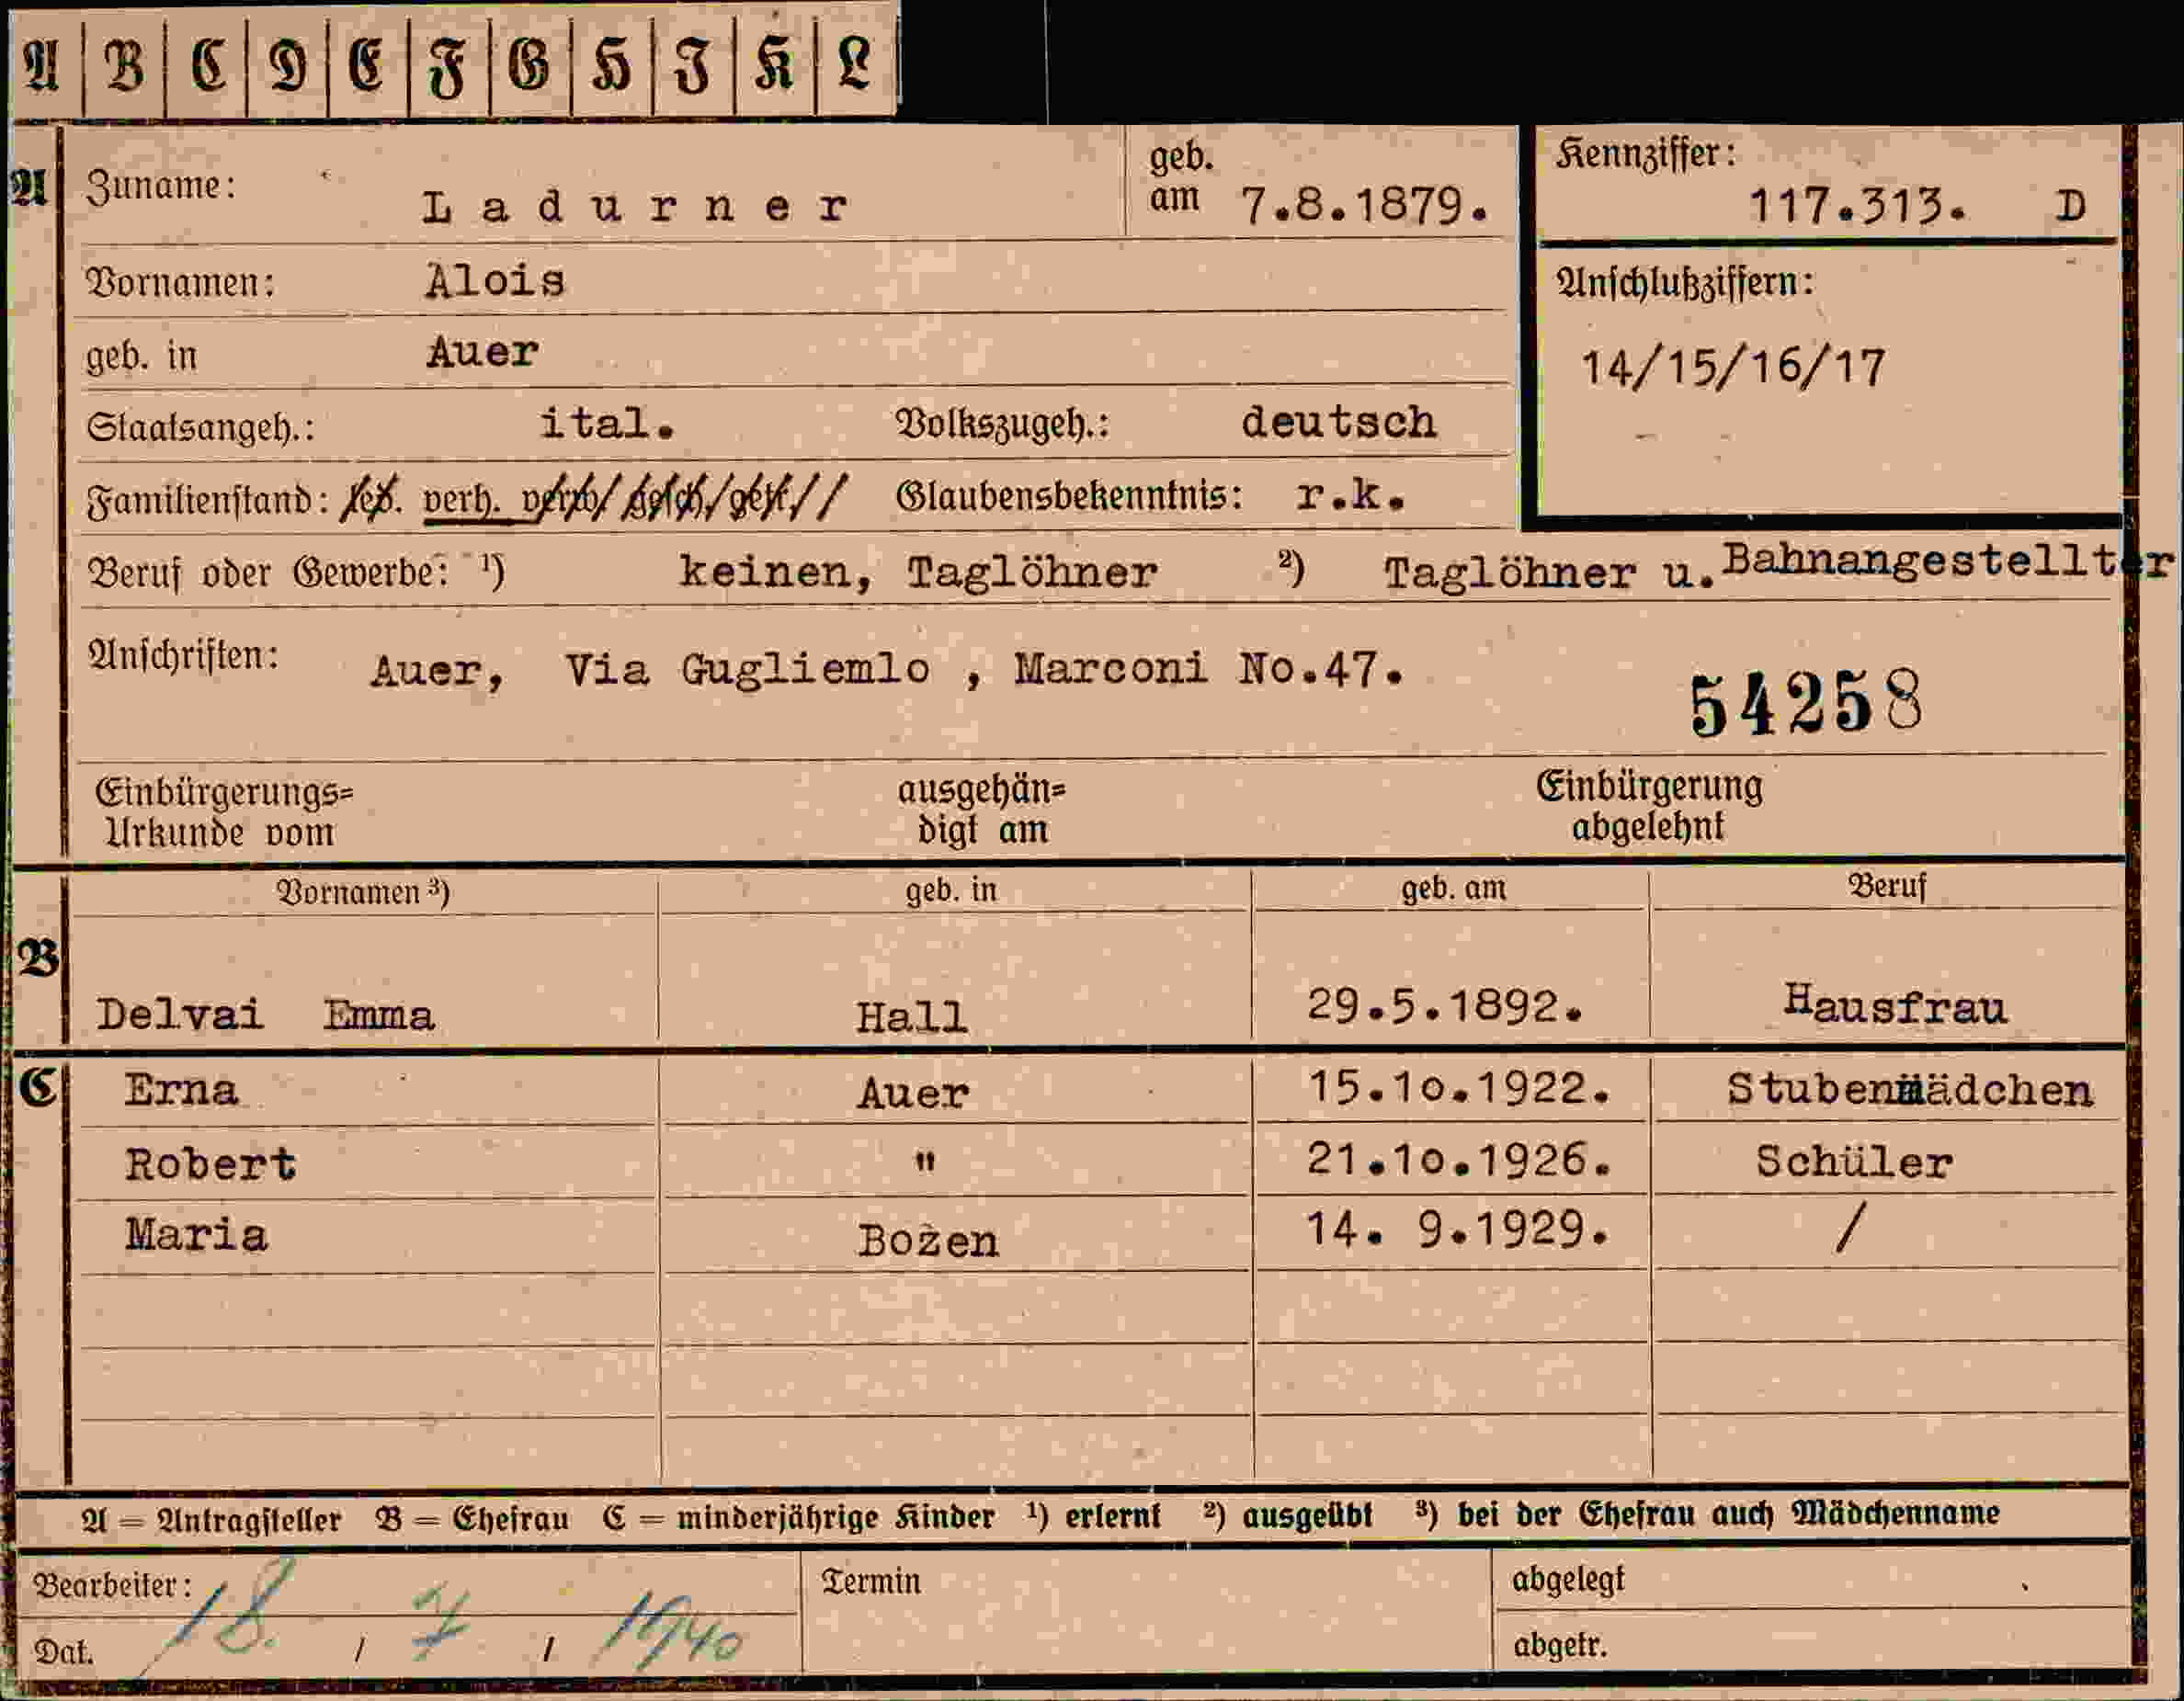 A B C D E F G H J K L
A Zuname: Ladurner geb. am 7.8.1879. Kennziffer: 117.313. D
Vornamen: Alois Anschlußziffern:
geb. in Auer 14/15/16/17
Staatsangeh.: ital. Volkszugeh.: deutsch
Familienstand: led. verh. verw/ gesch/getr// Glaubensbekenntnis: r.k.
Beruf oder Gewerbe: ¹) keinen, Taglöhner ²) Taglöhner u. Bahnangestellter
Anschriften: Auer, Via Gugliemlo , Marconi No.47. 54258
Einbürgerungs= ausgehän= Einbürgerung
Urkunde vom digt am abgelehnt
Vornamen ³) geb. in geb. am Beruf
B
Delvai Emma Hall 29.5.1892. Hausfrau
C Erna Auer 15.10.1922. Stubenmädchen
Robert " 21.10.1926. Schüler
Maria Bozen 14. 9.1929. /
A = Antragsteller B = Ehefrau C = minderjährige Kinder ¹) erlernt ²) ausgeübt ³) bei der Ehefrau auch Mädchenname
Bearbeiter: Termin abgelegt
Dat. 18. / 7 / 1940 abgetr.